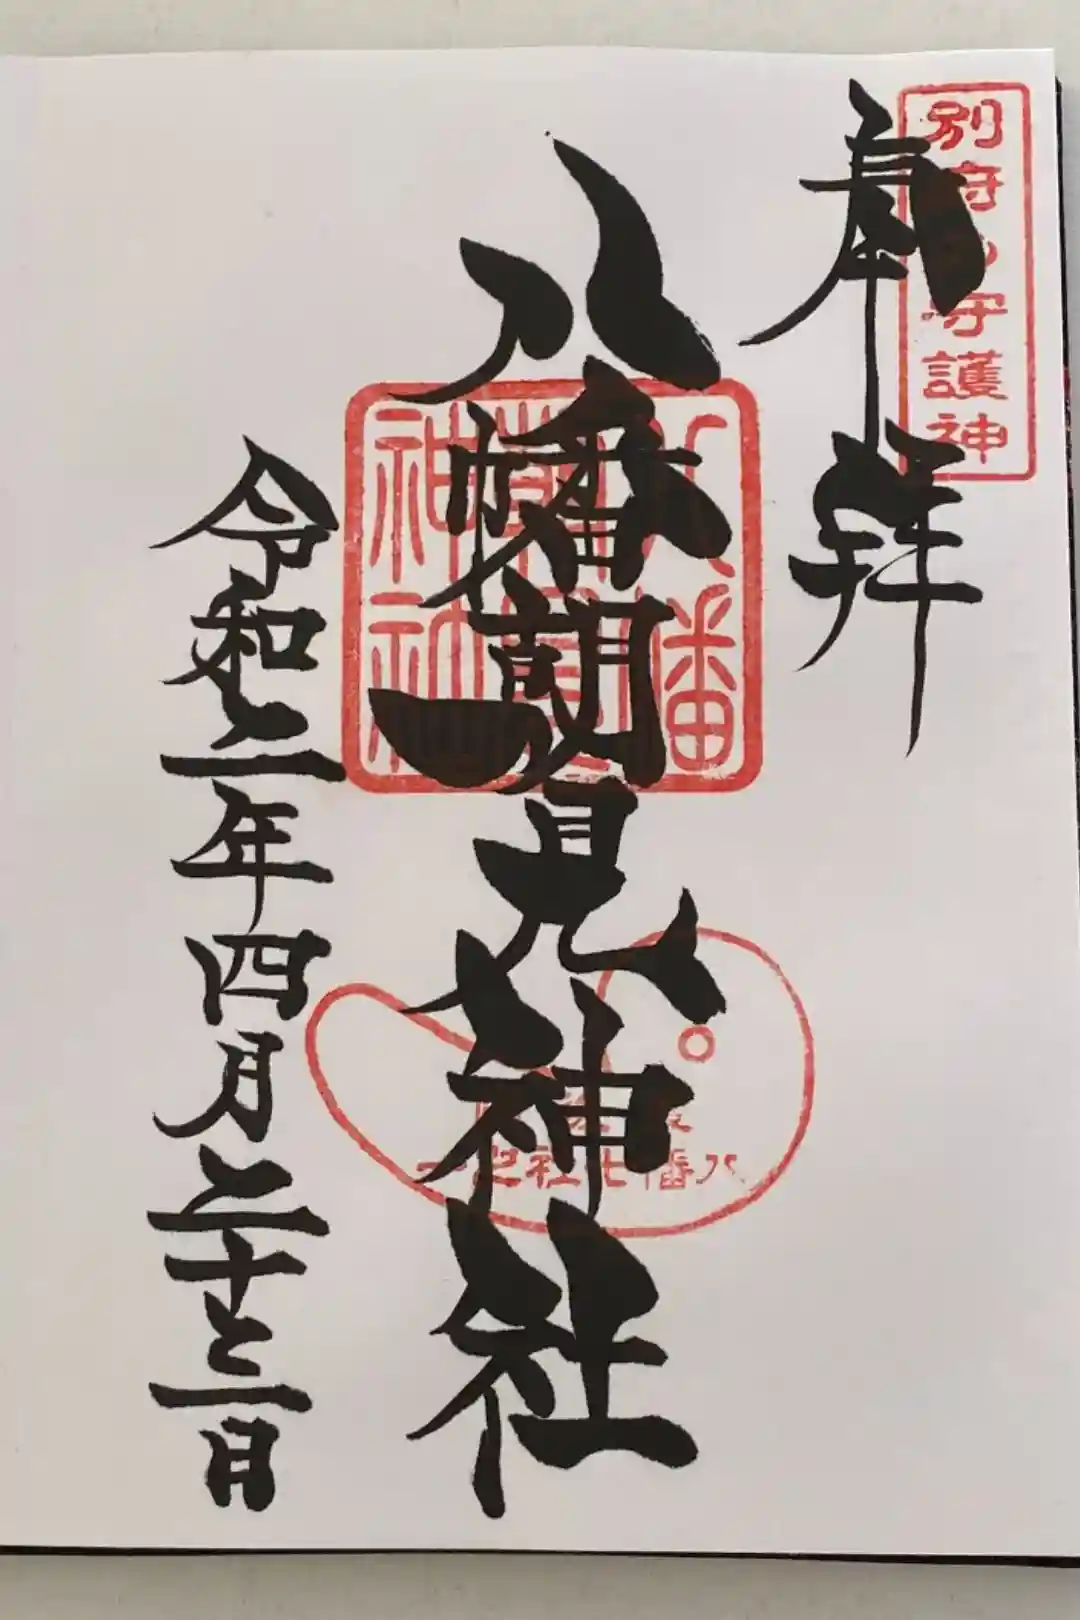 別府の守護神
奉拝
八幡朝見神社
八幡朝見神社
八幡七社之一
令和二年四月二十三日